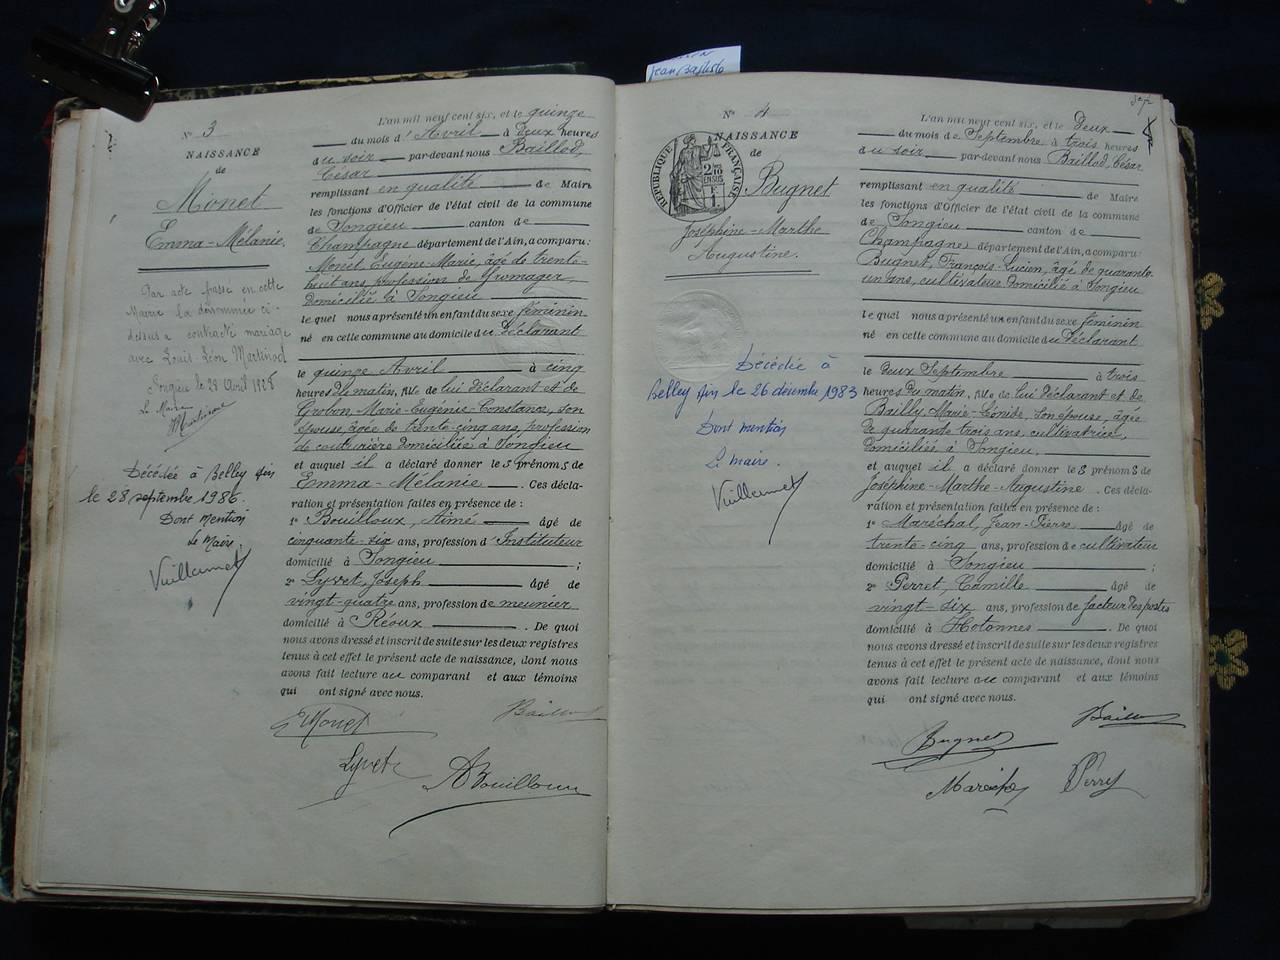 Jean Baptiste
N° 3
NAISSANCE
de
Monet
Emma-Mélanie.
Par acte passé en cette
Mairie la dénommée ci-
dessus a contracté mariage
avec Louis Léon Martinod
Songieu le 28 Avril 1928
Le Maire
Décédée à Belley Ain
le 28 septembre 1986.
Dont Mention
Le Maire.
Vuillermet
L'an mil neuf cent six, et le quinze
du mois d'Avril à Deux heures
du soir par-devant nous Baillod,
César
remplissant en qualité de Maire
les fonctions d'Officier de l'état civil de la commune
de Songieu canton de
Champagne département de l'Ain, a comparu:
Monet, Eugène-Marie, âgé de trente-
huit ans, profession de fromager,
domicilié à Songieu
lequel nous a présenté un enfant du sexe féminin
né en cette commune au domicile du Déclarant
le quinze Avril à cinq
heures du matin, fille de lui déclarant et de
Grobon, Marie-Eugénie-Constance, son
épouse, âgée de trente-cinq ans, profession
de couturière domiciliée à Songieu
et auquel il a déclaré donner les prénoms de
Emma-Mélanie. Ces décla-
ration et présentation faites en présence de :
1° Bouilloux, Aimé âgé de
cinquante-six ans, profession d'Instituteur
domicilié à Songieu ;
2° Lyvet, Joseph âgé de
vingt-quatre ans, profession de meunier
domicilié à Réoux. De quoi
nous avons dressé et inscrit de suite sur les deux registres
tenus à cet effet le présent acte de naissance, dont nous
avons fait lecture au comparant et aux témoins
qui ont signé avec nous.
EMonet
Baillod
Lyvet
ABouilloux
N° 4
NAISSANCE
de
RÉPUBLIQUE FRANÇAISE
2/10 EN SUS
Bugnet
Joséphine-Marthe
Augustine.
Décédée à
Belley Ain le 26 décembre 1983
Dont mention
Le Maire.
Vuillermet
L'an mil neuf cent six, et le Deux
du mois de Septembre à trois heures
du soir par-devant nous Baillod, César
remplissant en qualité de Maire
les fonctions d'Officier de l'état civil de la commune
de Songieu canton de
Champagne département de l'Ain, a comparu:
Bugnet, François-Lucien, âgé de quarante
un ans, cultivateur domicilié à Songieu
lequel nous a présenté un enfant du sexe féminin
né en cette commune au domicile du Déclarant
le Deux Septembre à trois
heures du matin, fille de lui déclarant et de
Bailly, Marie-Léonide, son épouse, âgée
de quarante trois ans, cultivatrice,
domiciliée à Songieu.
et auquel il a déclaré donner les prénoms de
Joséphine-Marthe-Augustine. Ces décla-
ration et présentation faites en présence de :
1° Maréchal, Jean-Pierre âgé de
trente-cinq ans, profession de cultivateur
domicilié à Songieu ;
2° Perret, Camille âgé de
vingt-six ans, profession de facteur des postes
domicilié à Hotonnes. De quoi
nous avons dressé et inscrit de suite sur les deux registres
tenus à cet effet le présent acte de naissance, dont nous
avons fait lecture au comparant et aux témoins
qui ont signé avec nous.
Baillod
Bugnet
Maréchal
Perret